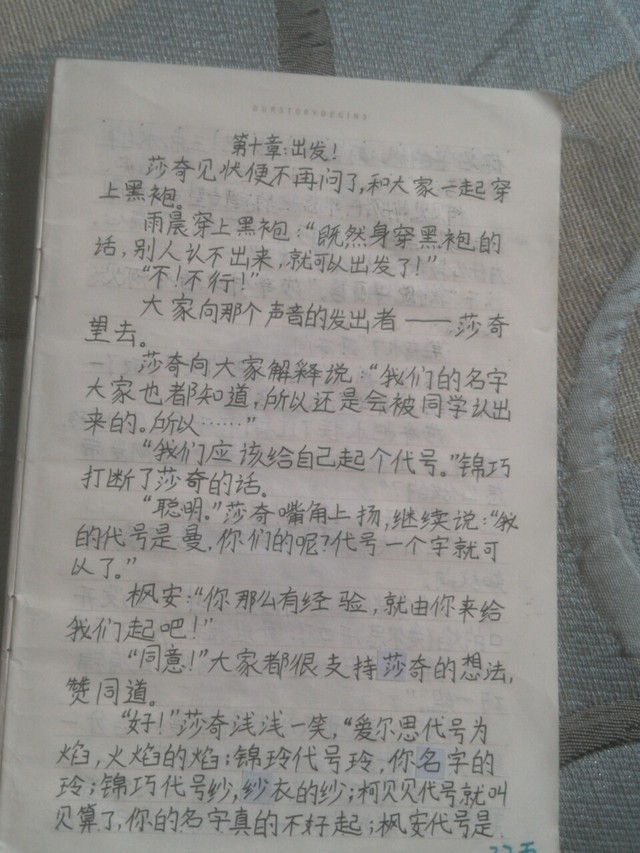 第十章:出发!
莎奇见状便不再问了,和大家一起穿
上黑袍。
雨晨穿上黑袍:“既然身穿黑袍的
话,别人认不出来,就可以出发了!”
“不!不行!”
大家向那个声音的发出者——莎奇
望去。
莎奇向大家解释说:“我们的名字
大家也都知道,所以还是会被同学认出
来的。所以……”
“我们应该给自己起个代号。”锦巧
打断了莎奇的话。
“聪明。”莎奇嘴角上扬,继续说:“我
的代号是曼,你们的呢?代号一个字就可
以了。”
枫安:“你那么有经验,就由你来给
我们起吧!”
“同意!”大家都很支持莎奇的想法,
赞同道。
“好!”莎奇浅浅一笑,“爱尔思代号为
焰,火焰的焰;锦玲代号玲,你名字的
玲;锦巧代号纱,纱衣的纱;柯贝贝代号就叫
贝算了,你的名字真的不好起;枫安代号是